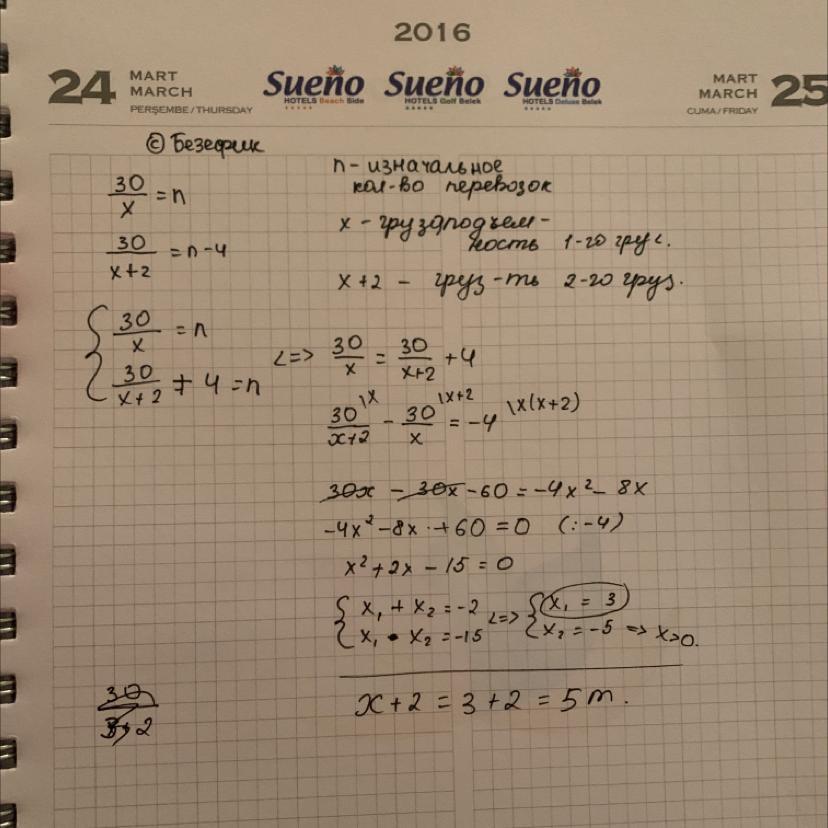 2016
24 МАРТ MARCH PERŞEMBE / THURSDAY
Sueño HOTELS Beach Side
Sueño HOTELS Golf Belek
Sueño HOTELS Deluxe Belek
МАРТ MARCH CUMA / FRIDAY 25
© Безефрик
30/x = n
30/x+2 = n-4
{ 30/x = n
30/x+2 + 4 = n
n - изначальное
кол-во перевозок
x - грузоподъем-
ность 1-го груз.
x+2 - груз-ть 2-го груз.
<=> 30/x = 30/x+2 + 4
30/x+2 \x - 30/x \x+2 = -4 \x(x+2)
30x - 30x - 60 = -4x² - 8x
-4x² - 8x + 60 = 0 (:-4)
x² + 2x - 15 = 0
{ x₁ + x₂ = -2
x₁ • x₂ = -15
<=> { x₁ = 3
x₂ = -5 => x>0.
x+2 = 3+2 = 5т.
30/3+2